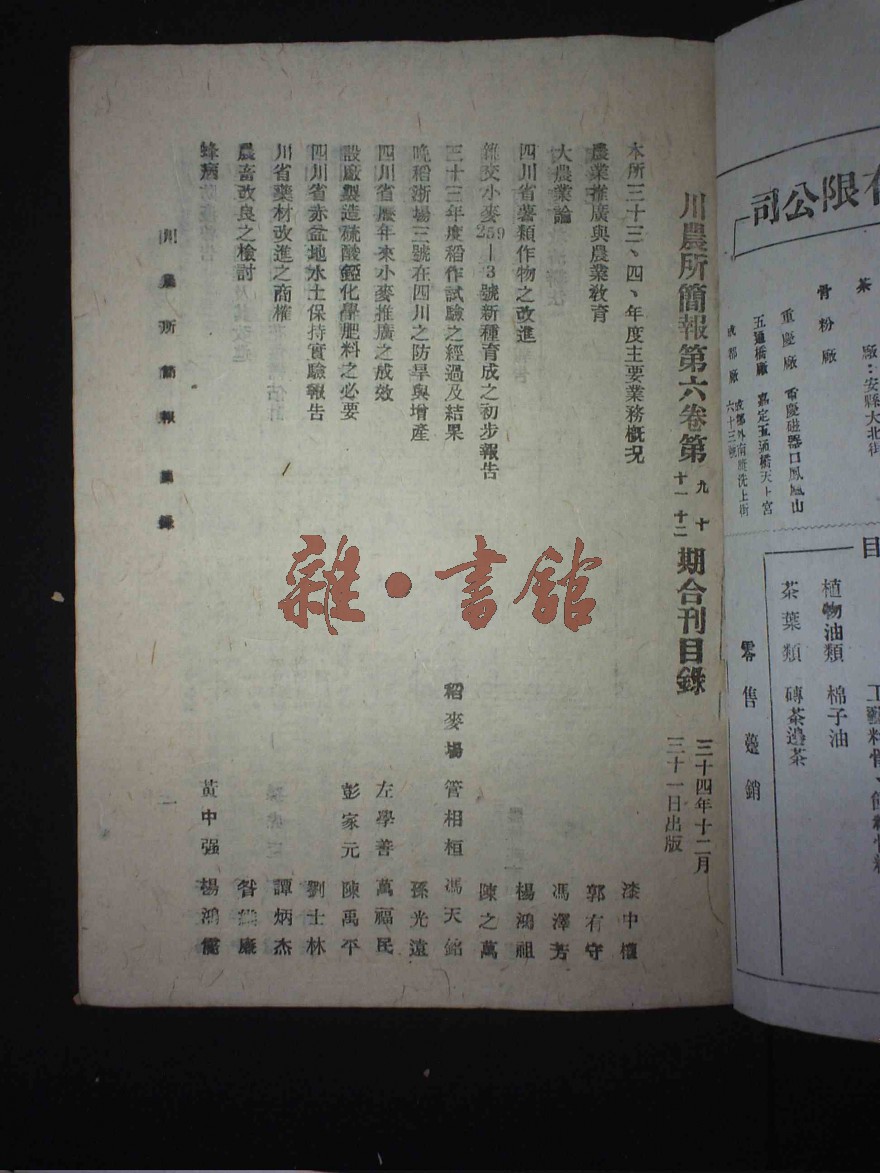 川農所簡報第六卷第九十十一十二期合刊目錄
三十四年十二月
三十一日出版
本所三十三、四、年度主要業務概況 漆中權
農業推廣與農業教育 郭有守
大農業論 馮澤芳
四川省薯類作物之改進 楊鴻祖
雜交小麥259—3號新種育成之初步報告 陳之萬
三十三年度稻作試驗之經過及結果 稻麥場 管相桓 馮天銘
晚稻浙場三號在四川之防旱與增產 孫光遠
四川省歷年來小麥推廣之成效 左學善 萬福民
設廠製造硫酸錏化學肥料之必要 彭家元 陳禹平
四川省赤盆地水土保持實驗報告 劉士林
川省藥材改進之商榷 譚炳杰
農畜改良之檢討 廉
蜂病 黃中强 楊鴻
川農所簡報 目錄
一
雜·書館
有限公司
茶 廠:安縣大北街
骨粉廠
重慶廠 重慶磁器口鳳凰山
五通橋廠 嘉定五通橋天上宮
成都廠 成都外南 洗上街六十三號
目
植物油類 棉子油
茶葉類 磚茶邊茶
零售躉銷